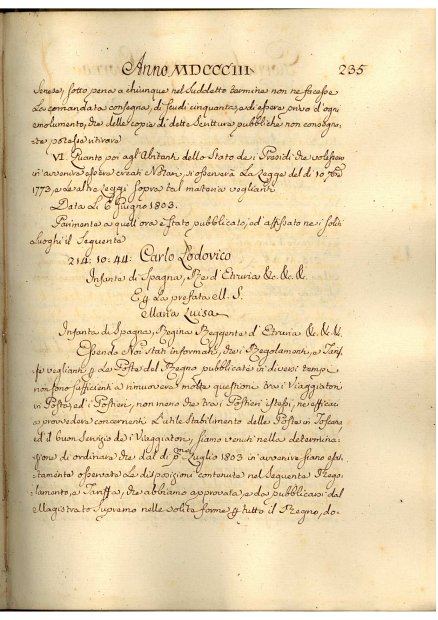 Anno MDCCCIII. 235
Senese, sotto pena a chiunque nel suddetto termine non ne facesse
La comandata consegna, di scudi cinquanta, e di essere privo d'ogni
emolumento, che delle copie di dette Scritture pubbliche non consegna-
te potesse ritirare
VI. Quanto poi agl'Abitanti dello Stato de i Presidi che volessero
in avvenire essere creati Notari, si osserverà La Legge del dì 10. 
1773, e Le altre Leggi sopra tal materia veglianti
Data Lì 6 Giugno 1803.
Parimente a quell'ora è stato pubblicato, ed affissato ne i soliti
Luoghi il Seguente
214: 10: 44: Carlo Lodovico
Infante di Spagna, Re d'Etruria &c. &c. &c.
E p La prefata M. S.
Maria Luisa
Infanta di Spagna, Regina Reggente d'Etruria &c. &c. &c.
Essendo Noi stati informati, che i Regolamenti, e Tarif-
fe veglianti p Le Poste del Regno pubblicate in diversi tempi
non sono sufficienti a rimuovere molte questioni tra i Viaggiatori
in Posta, ed i Postieri, non meno che tra i Postieri istessi, ne efficaci
a provvedere concernenti L'utile Stabilimento delle Poste in Toscana
ed il buon Servizio de i Viaggiatori, siamo venuti nella determina-
zione di ordinare che dal dì pmo Luglio 1803 in avvenire siano esat-
tamente osservate Le disposizioni contenute nel Seguente Rego-
lamento, e Tariffa, che abbiamo approvata, e da pubblicarsi dal
Magistrato Supremo nelle solite forme p tutto il Regno, do-